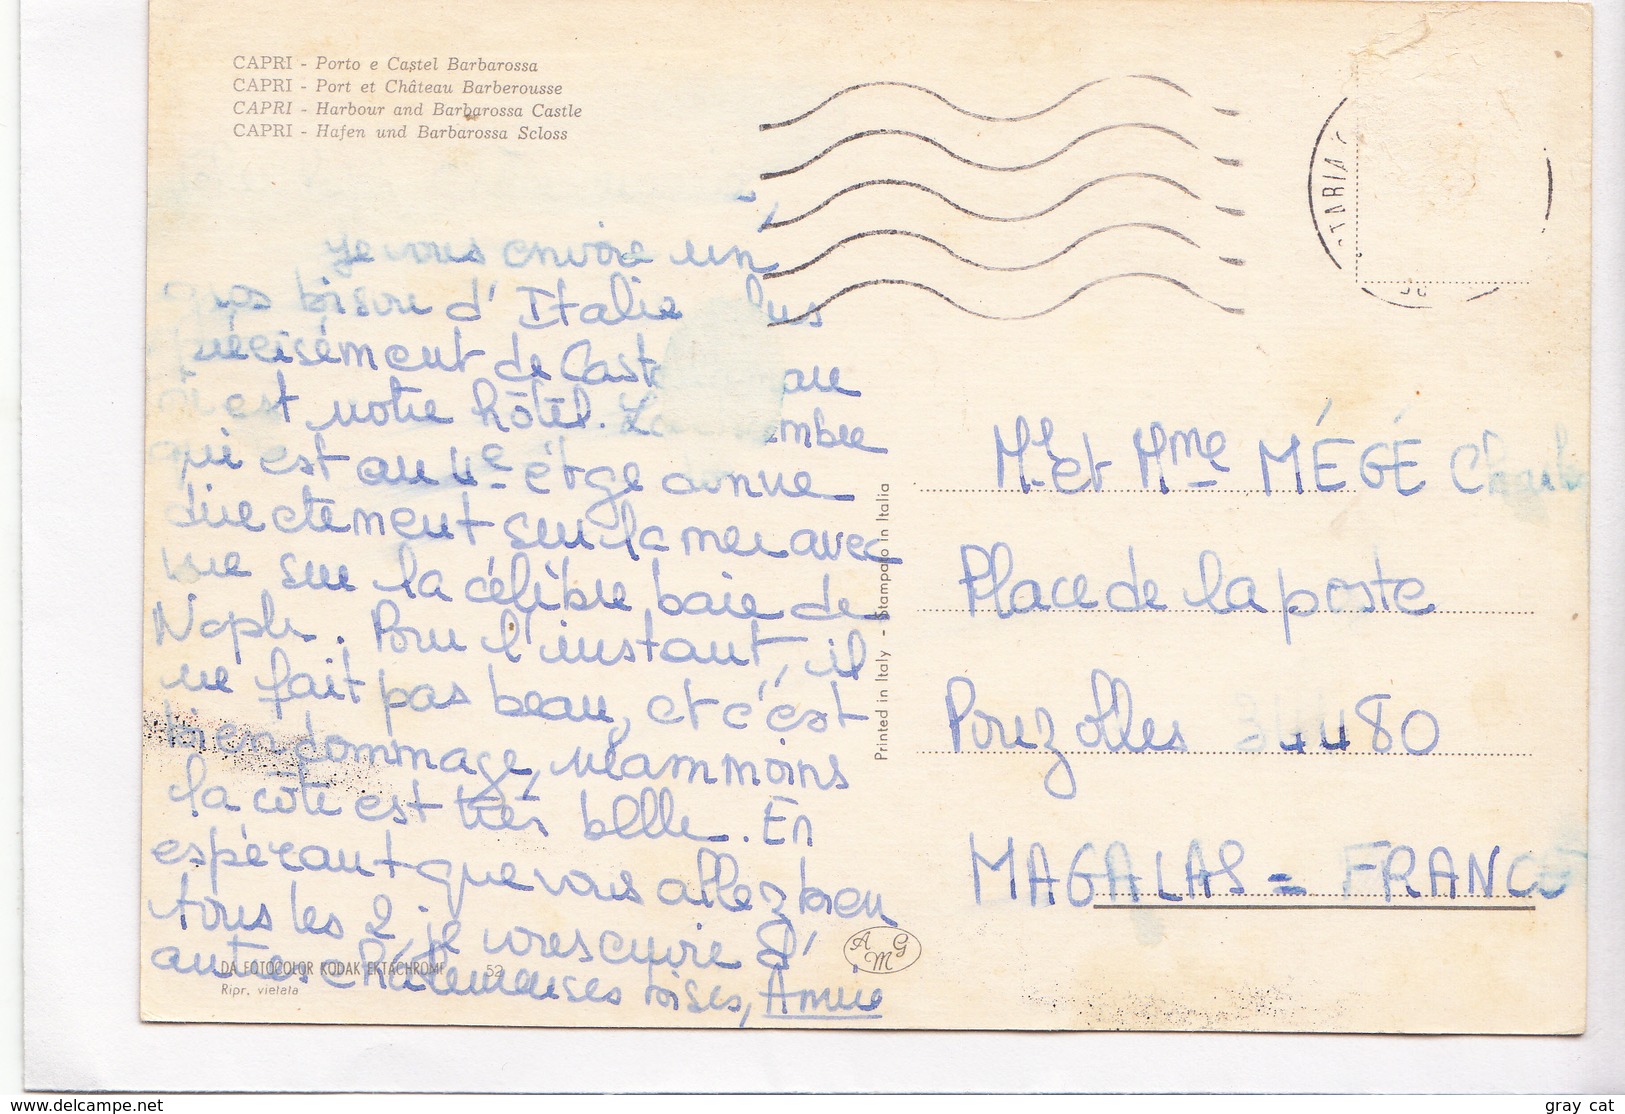 CAPRI - Porto e Castel Barbarossa
CAPRI - Port et Château Barberousse
CAPRI - Harbour and Barbarossa Castle
CAPRI - Hafen und Barbarossa Scloss
Je vous envoie un
gros bisou d'Italie plus
précisément de
où est notre hôtel. La chambre
qui est au 4e étge donne
directement sur la mer avec
vue sur la célèbre baie de
Naples. Pour l'instant, il
ne fait pas beau, et c'est
bien dommage, néammoins
la côte est très belle. En
espérant que vous allez bien
tous les 2 je
autres bises, Annie
Mr et Mme MÉGÉ Charles
Place de la poste
Pouzolles 34480
MAGALAS = FRANCE
Printed in Italy - Stampato in Italia
DA FOTOCOLOR KODAK EKTACHROME 52
Ripr. vietata
A G M
www.delcampe.net
gray cat